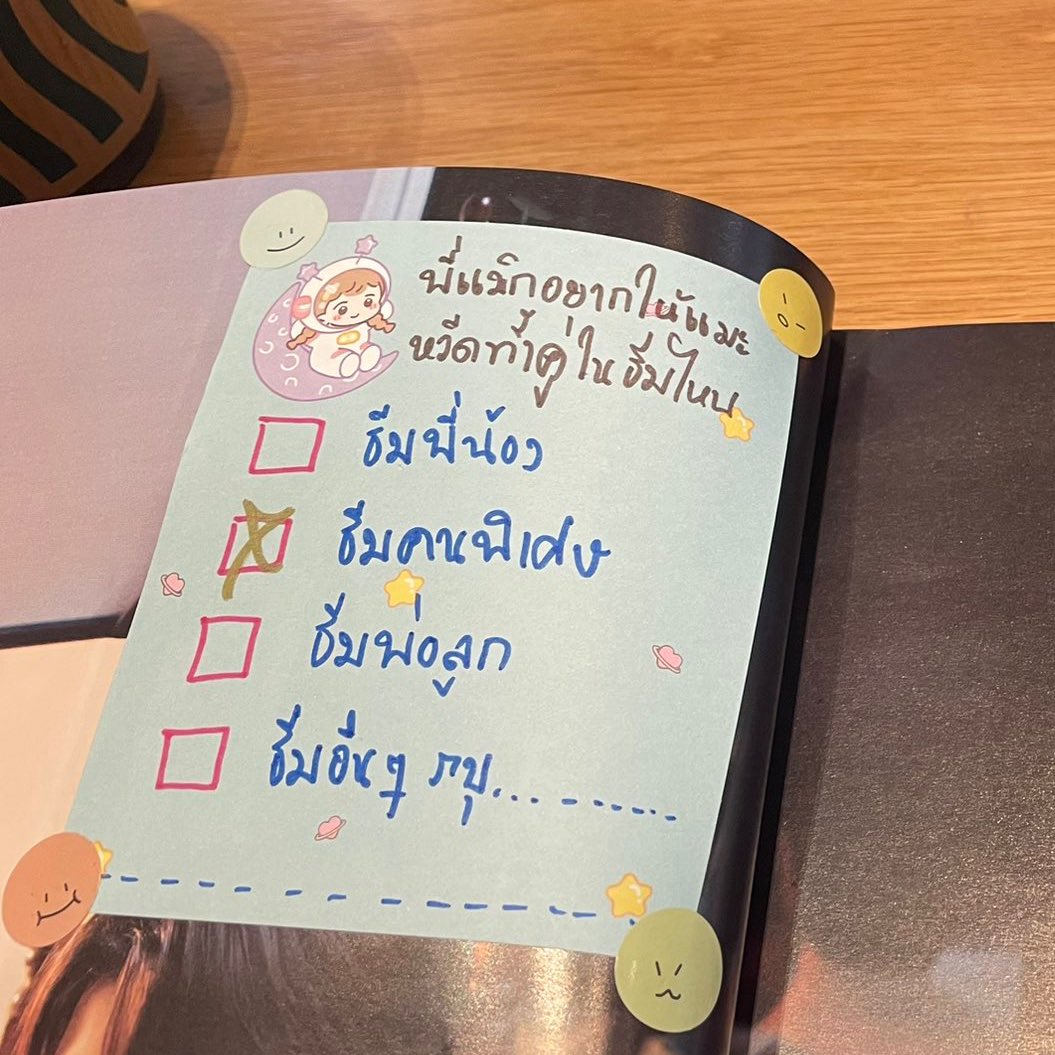 พี่แม๊กอยากให้แมะ
หวีดทั้งคู่ในธีมไหน
ธีมพี่น้อง
ธีมคนพิเศษ
ธีมพ่อลูก
ธีมอื่นๆ ระบุ... ------